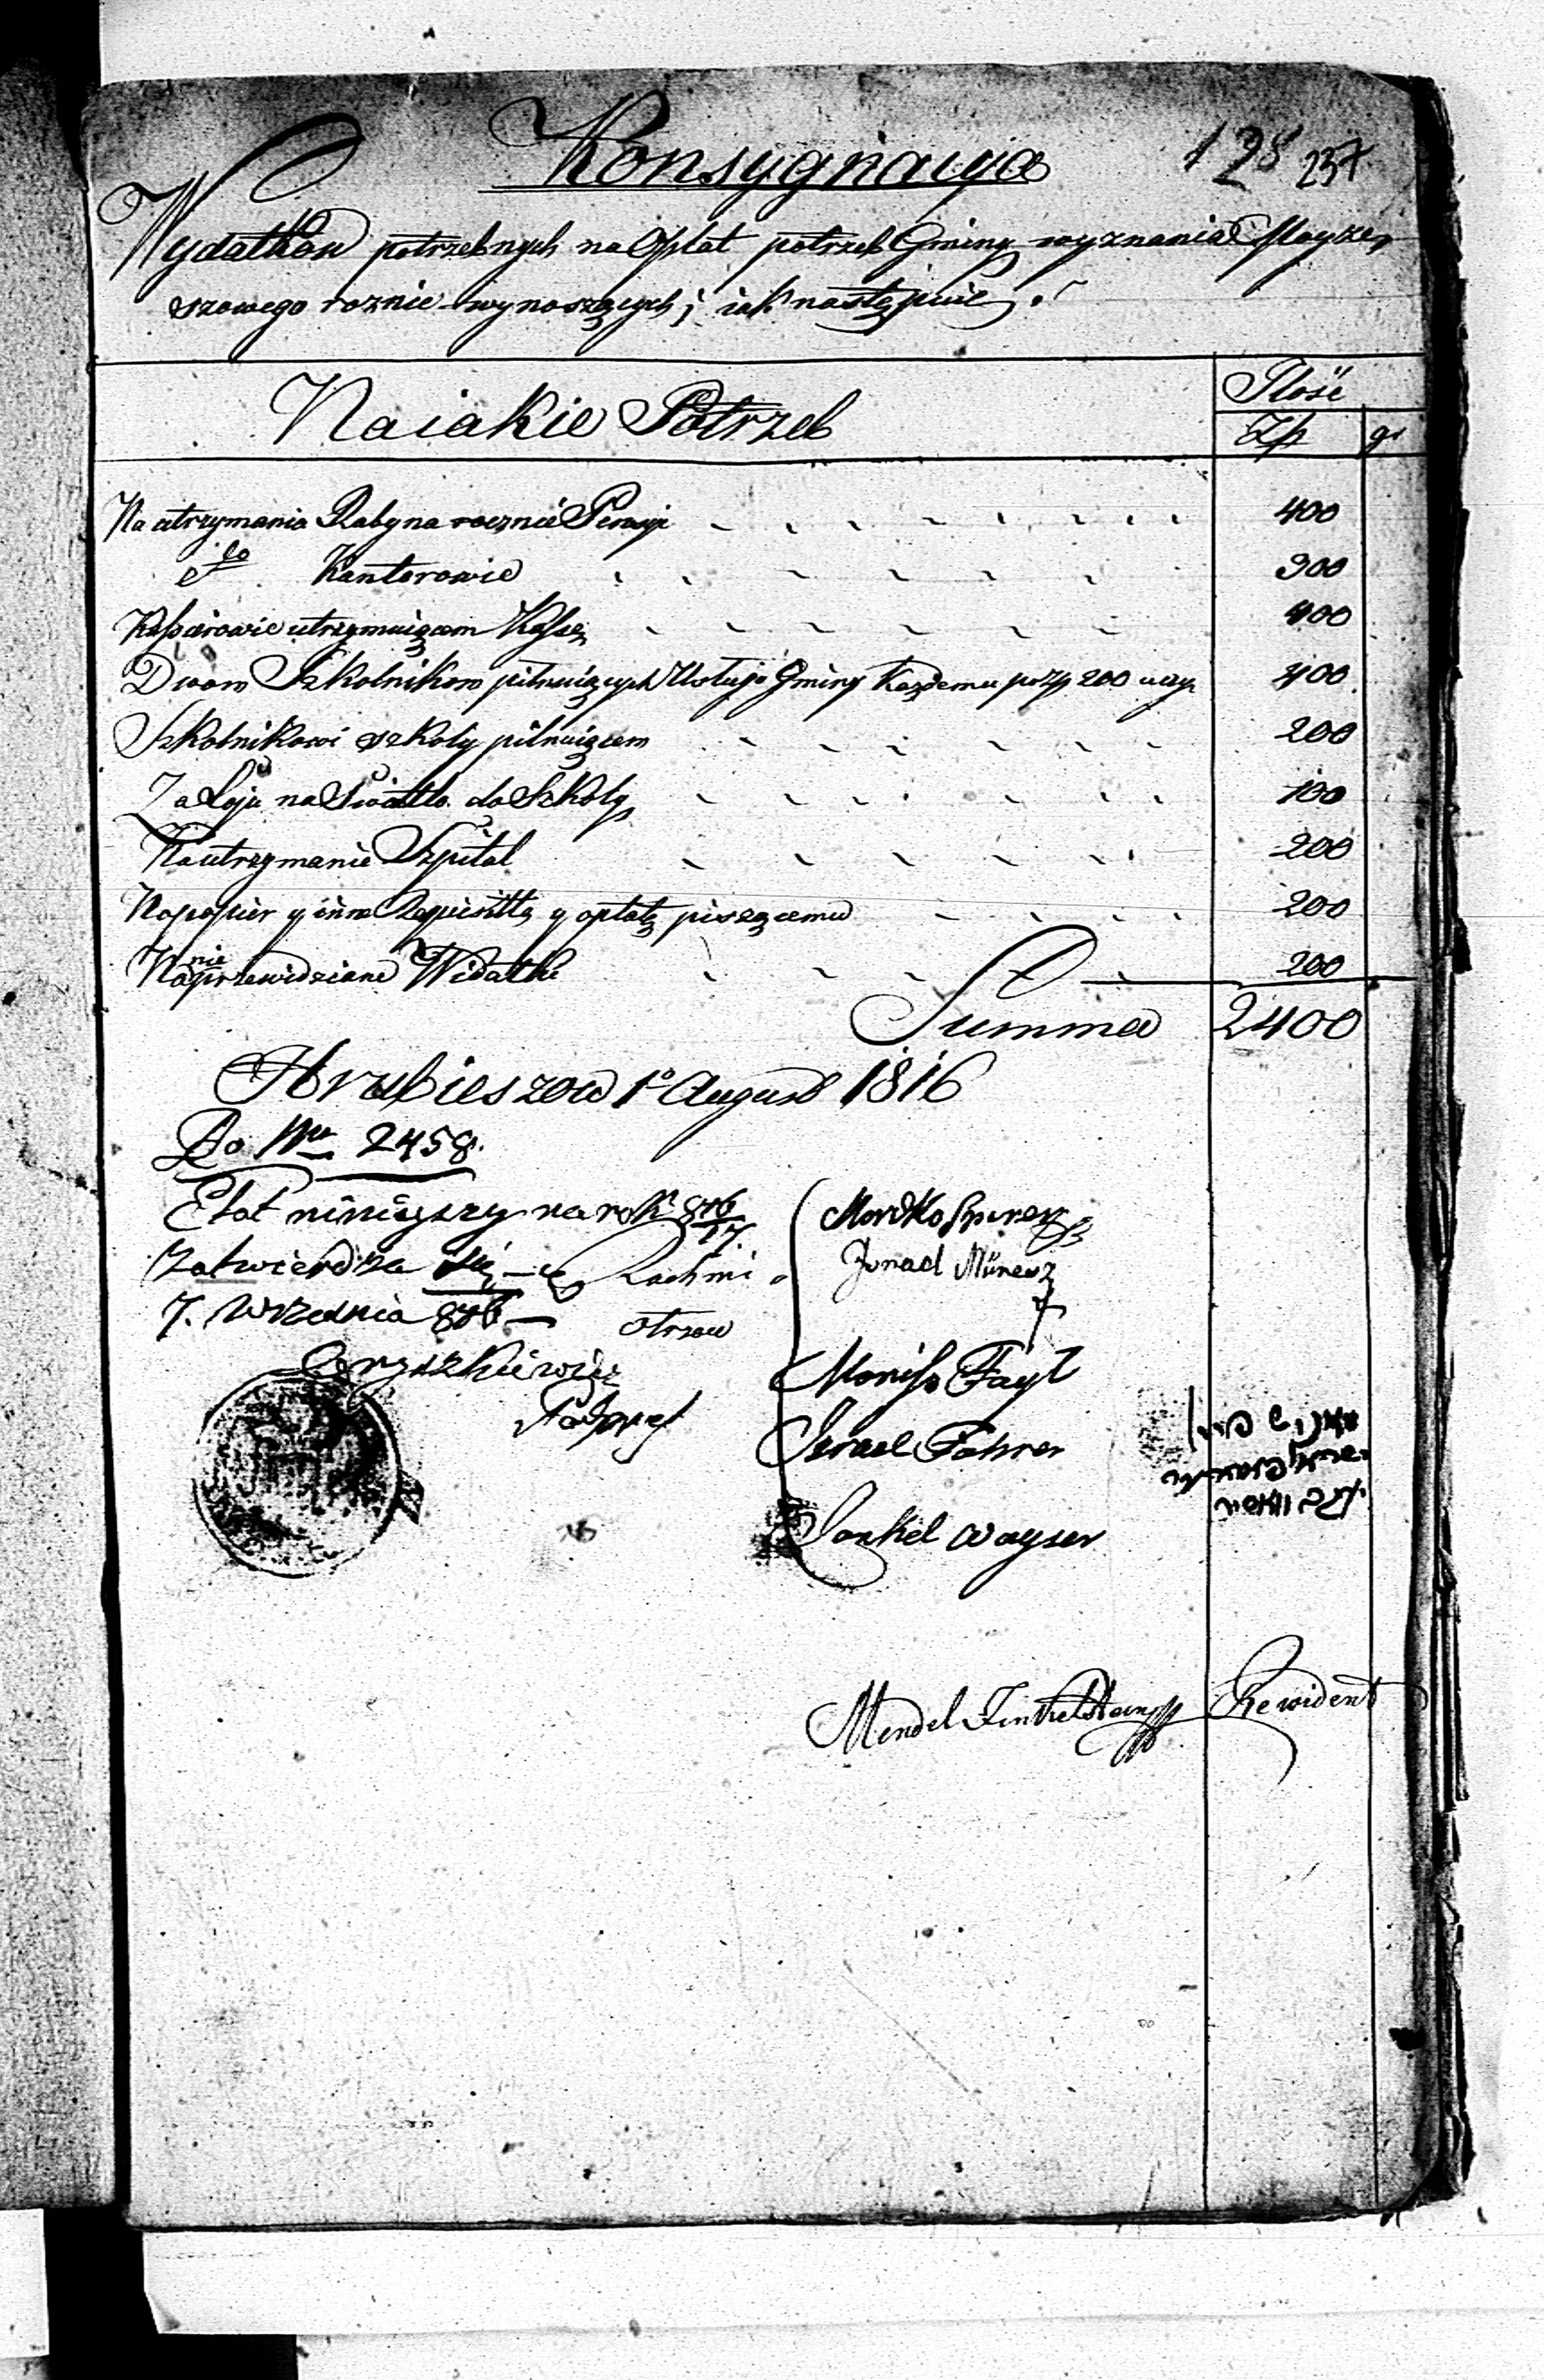 Konsygnacya
128 237
Wydatkow potrzebnych na Opłat potrzeb Gminy wyznania Moyze,
szowego rocznie wynoszących, iak następuie.
Na iakie Potrzeb
Ilość
Zp gr
Na utrzymania Rabyna rocznie Pensyi 400
dto Kantorowie 300
Kassierowie utrzymuiącem Kassę 400
Dwom Szkolnikom pilnuiących Usługi Gminy Każdemu po Zp 200 400
Szkolnikowi szkoły pilnuiącem 200
Za Łoju na Swiatło do Szkoły 100
Na utrzymanie Szpital 200
Na papier y inne y opłatę piszącemu 200
Na nie przewidziane Widatki 200
Summa 2400
Hrubieszow 1o August 1816
Do Nru 2458.
Etat ninieyszy na rok 816/17
Zatwierdza się
7. Września 816
Podpref
Mordko Sperer
Jonas
Monish Fayl
Israel Fahrer
Jankel Wayser
Mendel Finkelstein Rewident